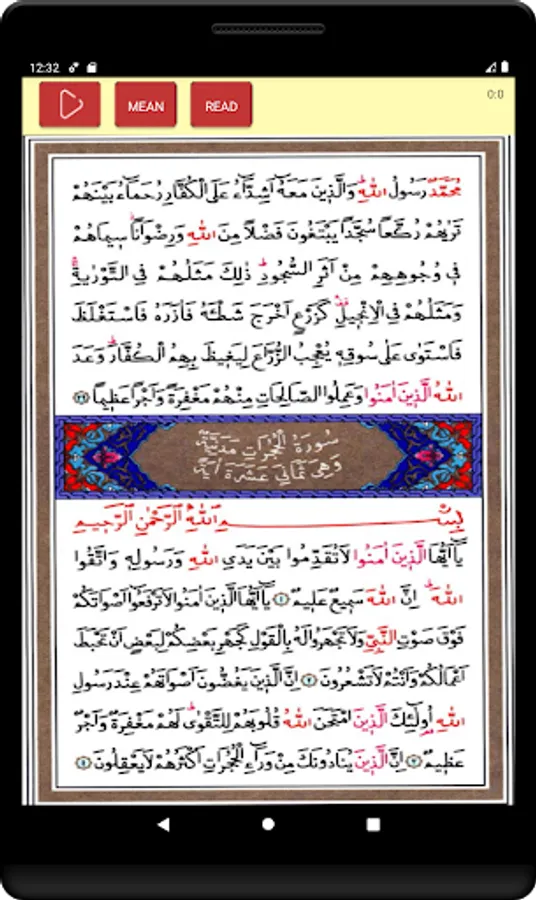 12:32
MEAN READ 0:0
مُحَمَّدٌ رَسُولُ اللّٰهِ وَالَّذِينَ مَعَهُ اَشِدَّاءُ عَلَى الْكُفَّارِ رُحَمَاءُ بَيْنَهُمْ
تَرٰيهُمْ رُكَّعًا سُجَّدًا يَبْتَغُونَ فَضْلًا مِنَ اللّٰهِ وَرِضْوَانًا سِيمَاهُمْ
فِى وُجُوهِهِمْ مِنْ اَثَرِ السُّجُودِ ذٰلِكَ مَثَلُهُمْ فِى التَّوْرٰيةِ
وَمَثَلُهُمْ فِى الْاِنْجِيلِ كَزَرْعٍ اَخْرَجَ شَطْـَٔهُ فَاٰزَرَهُ فَاسْتَغْلَظَ
فَاسْتَوٰى عَلٰى سُوقِهِ يُعْجِبُ الزُّرَّاعَ لِيَغِيظَ بِهِمُ الْكُفَّارَ وَعَدَ
اللّٰهُ الَّذِينَ اٰمَنُوا وَعَمِلُوا الصَّالِحَاتِ مِنْهُمْ مَغْفِرَةً وَاَجْرًا عَظِيمًا ٢٩
سُورَةُ الْحُجُرَاتِ مَدَنِيَّةٌ
وَهِىَ ثَمَانِىَ عَشْرَةَ اٰيَةً
بِسْمِ اللّٰهِ الرَّحْمٰنِ الرَّحِيمِ
يَا اَيُّهَا الَّذِينَ اٰمَنُوا لَا تُقَدِّمُوا بَيْنَ يَدَىِ اللّٰهِ وَرَسُولِهِ وَاتَّقُوا
اللّٰهَ اِنَّ اللّٰهَ سَمِيعٌ عَلِيمٌ ١ يَا اَيُّهَا الَّذِينَ اٰمَنُوا لَا تَرْفَعُوا اَصْوَاتَكُمْ
فَوْقَ صَوْتِ النَّبِىِّ وَلَا تَجْهَرُوا لَهُ بِالْقَوْلِ كَجَهْرِ بَعْضِكُمْ لِبَعْضٍ اَنْ تَحْبَطَ
اَعْمَالُكُمْ وَاَنْتُمْ لَا تَشْعُرُونَ ٢ اِنَّ الَّذِينَ يَغُضُّونَ اَصْوَاتَهُمْ عِنْدَ رَسُولِ
اللّٰهِ اُولٰئِكَ الَّذِينَ امْتَحَنَ اللّٰهُ قُلُوبَهُمْ لِلتَّقْوٰى لَهُمْ مَغْفِرَةٌ وَاَجْرٌ
عَظِيمٌ ٣ اِنَّ الَّذِينَ يُنَادُونَكَ مِنْ وَرَاءِ الْحُجُرَاتِ اَكْثَرُهُمْ لَا يَعْقِلُونَ ٤